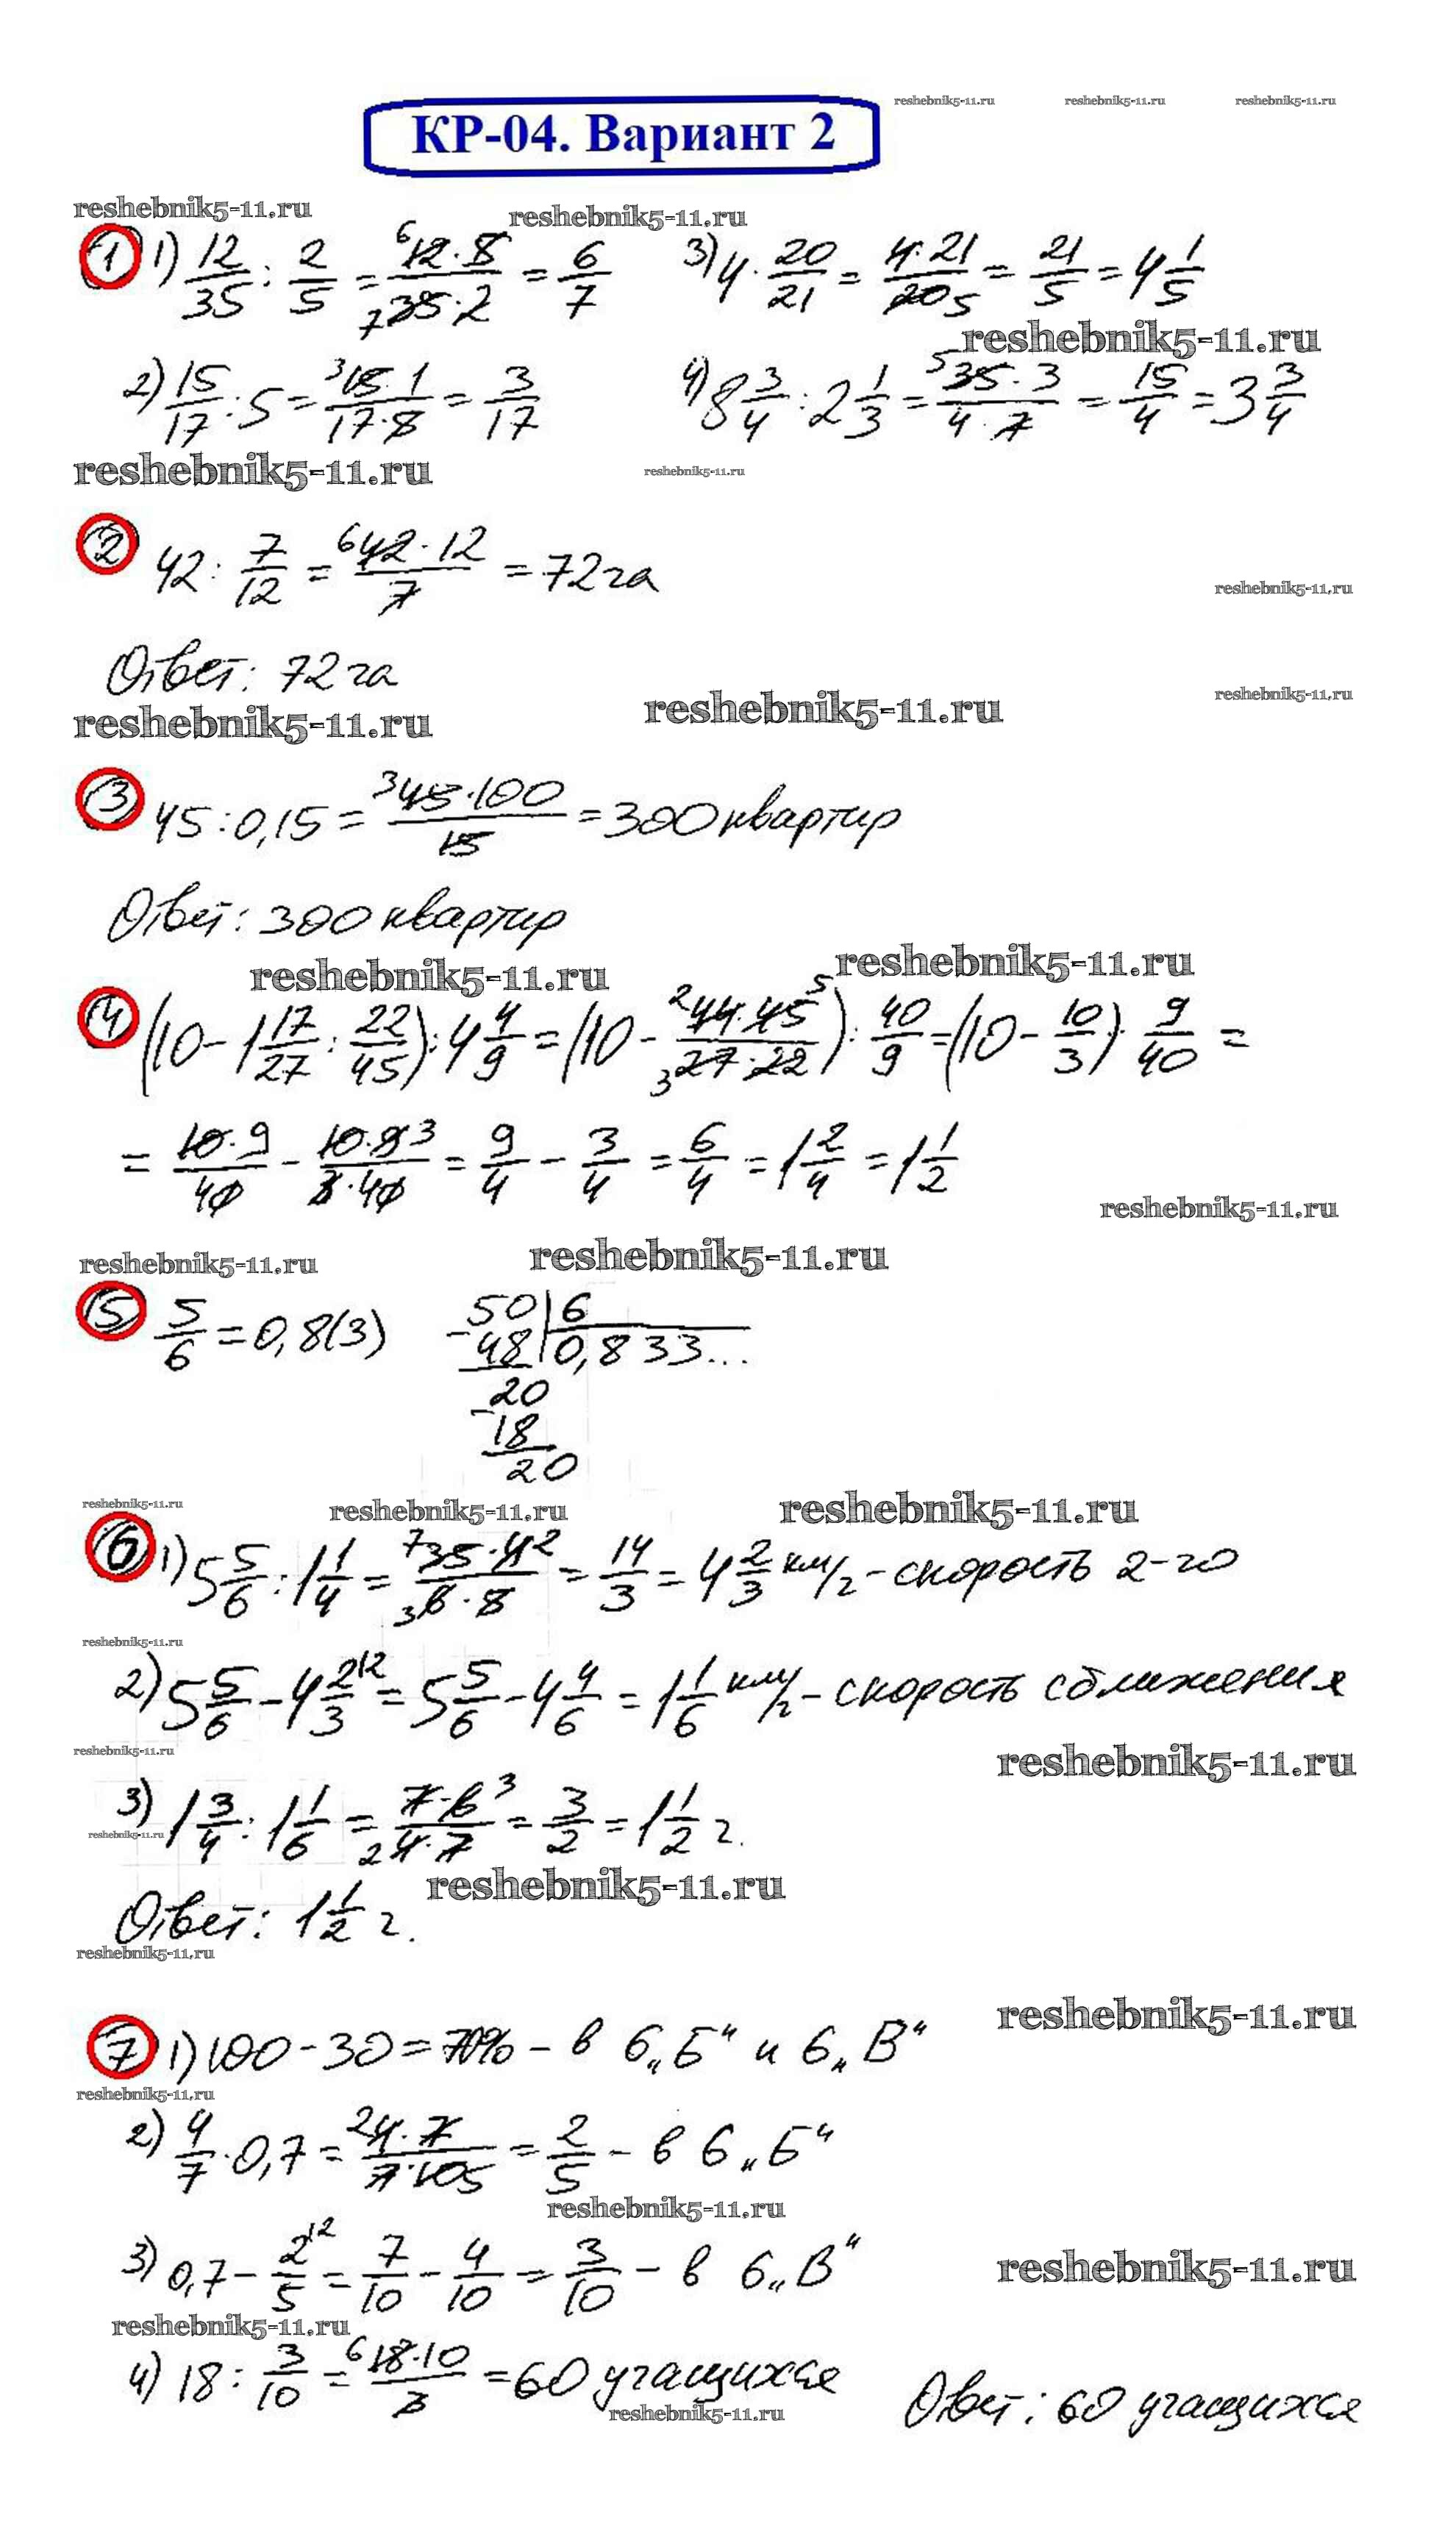 reshebnik5-11.ru reshebnik5-11.ru reshebnik5-11.ru
КР-04. Вариант 2
reshebnik5-11.ru reshebnik5-11.ru
1 1) 12/35 : 2/5 = 12·5/35·2 = 6/7 3) 4 · 20/21 = 4·21/20 = 21/5 = 4 1/5
reshebnik5-11.ru
2) 15/17 : 5 = 15·1/17·5 = 3/17 4) 8 3/4 : 2 1/3 = 35·3/4·7 = 15/4 = 3 3/4
reshebnik5-11.ru reshebnik5-11.ru
2 42 : 7/12 = 42·12/7 = 72 га
reshebnik5-11.ru
Ответ: 72 га
reshebnik5-11.ru reshebnik5-11.ru reshebnik5-11.ru
3 45 : 0,15 = 45·100/15 = 300 квартир
Ответ: 300 квартир
reshebnik5-11.ru reshebnik5-11.ru
4 (10 - 1 17/27 : 22/45) : 4 4/9 = (10 - 44·45/27·22) : 40/9 = (10 - 10/3) · 9/40 =
= 10·9/40 - 10·9/3·40 = 9/4 - 3/4 = 6/4 = 1 2/4 = 1 1/2
reshebnik5-11.ru
reshebnik5-11.ru reshebnik5-11.ru
5 5/6 = 0,8(3) 50 | 6
- 48 | 0,833...
20
- 18
20
reshebnik5-11.ru reshebnik5-11.ru reshebnik5-11.ru
6 1) 5 5/6 : 1 1/4 = 35·4/6·5 = 14/3 = 4 2/3 км/г - скорость 2-го
reshebnik5-11.ru
2) 5 5/6 - 4 2/3 = 5 5/6 - 4 4/6 = 1 1/6 км/г - скорость сближения
reshebnik5-11.ru reshebnik5-11.ru
3) 1 3/4 : 1 1/6 = 7·6/4·7 = 3/2 = 1 1/2 г.
reshebnik5-11.ru
reshebnik5-11.ru
Ответ: 1 1/2 г.
reshebnik5-11.ru
reshebnik5-11.ru
7 1) 100 - 30 = 70% - в 6„Б“ и 6„В“
reshebnik5-11.ru
2) 4/7 · 0,7 = 4·7/7·10 = 2/5 - в 6„Б“
reshebnik5-11.ru
3) 0,7 - 2/5 = 7/10 - 4/10 = 3/10 - в 6„В“
reshebnik5-11.ru
reshebnik5-11.ru
4) 18 : 3/10 = 18·10/3 = 60 учащихся
reshebnik5-11.ru
Ответ: 60 учащихся